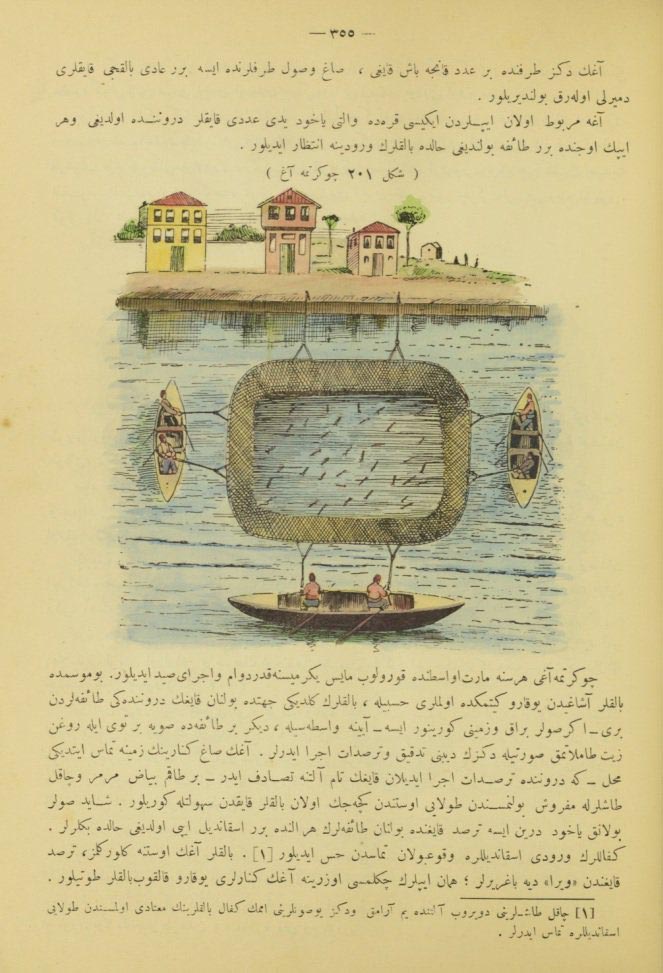 — ٣٥٥ —
آغك دكز طرفنده بر عدد قانجه باش قایغی ، صاغ وصول طرفلرنده ایسه برر عادی بالقجی قایقلری
دمیرلی اوله‌رق بولندیریلور .
آغه مربوط اولان ایپلردن ایكیسی قره‌ده والتی یاخود یدی عددی قایقلر دروننده اولدیغی وهر
ایپك اوجنده برر طائفه بولندیغی حالده بالقلرك ورودینه انتظار ایدیلور .
( شكل ٢٠١ چوكرتمه آغ )
چوكرتمه آغی هرسنه مارت اواسطنده قورولوب مایس یكرمیسنه قدر دوام واجرای صید ایدیلور. بوموسمده
بالقلر آشاغیدن یوقارو كیتمكده اولملری حسبیله ، بالقلرك كلدیكی جهتده بولنان قایغك دروننده‌كی طائفه‌لردن
بری ـ اكر صولر براق وزمینی كورینور ایسه ـ آیینه واسطه‌سیله ، دیكر بر طائفه‌ده صویه بر توی ایله روغن
زیت طاملاتمق صورتیله دكزك دیبنی تدقیق وترصدات اجرا ایدرلر . آغك صاغ كنارینك زمینه تماس ایتدیكی
محل ـ كه دروننده ترصدات اجرا ایدیلان قایغك تام آلتنه تصادف ایدر ـ بر طاقم بیاض مرمر وچاقل
طاشلرله مفروش بولنمسندن طولایی اوستندن كچه‌جك اولان بالقلر قایقدن سهولتله كوریلور . شاید صولر
بولانق یاخود درین ایسه ترصد قایغنده بولنان طائفه‌لرك هر النده برر اسقاندیل ایپی اولدیغی حالده بكلرلر .
كفاللرك ورودی اسقاندیللره وقوعبولان تماسدن حس ایدیلور [١] . بالقلر آغك اوستنه كلورككز، ترصد
قایغندن «ویرا» دیه باغریرلر ؛ همان ایپلرك چكلمسی اوزرینه آغك كنارلری یوقارو قالقوب بالقلر طوتیلور .
[١] چاقل طاشلرینی دویروب آلتنده یم آرامق ودكز یوصونلرینی اممك كفال بالقلرینك معتادی اولمسندن طولایی
اسقاندیللره تماس ایدرلر .